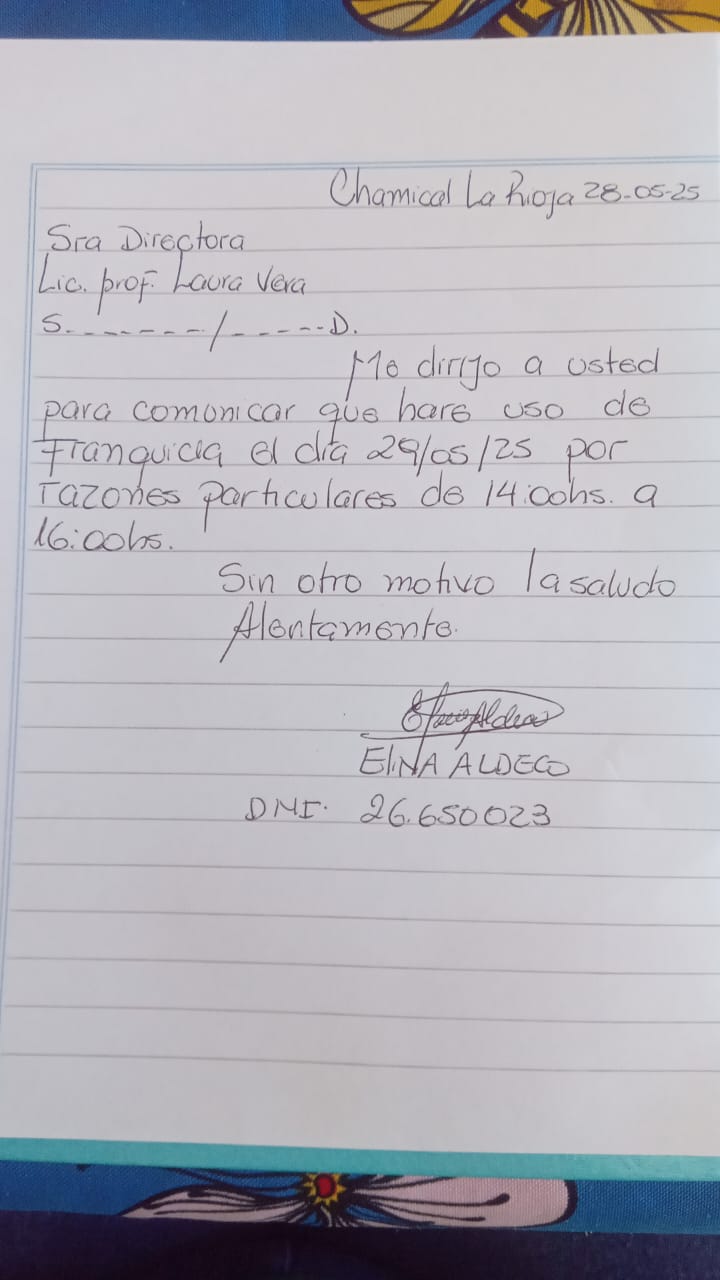 Chamical La Rioja 28-05-25
Sra Directora
Lic. prof. Laura Vera
S.-------/-----D.
Me dirijo a usted
para comunicar que hare uso de
Franquicia el día 29/05/25 por
razones particulares de 14:00hs. a
16:00hs.
Sin otro motivo la saludo
Atentamente.
ELINA ALDECO
DNI. 26.650023